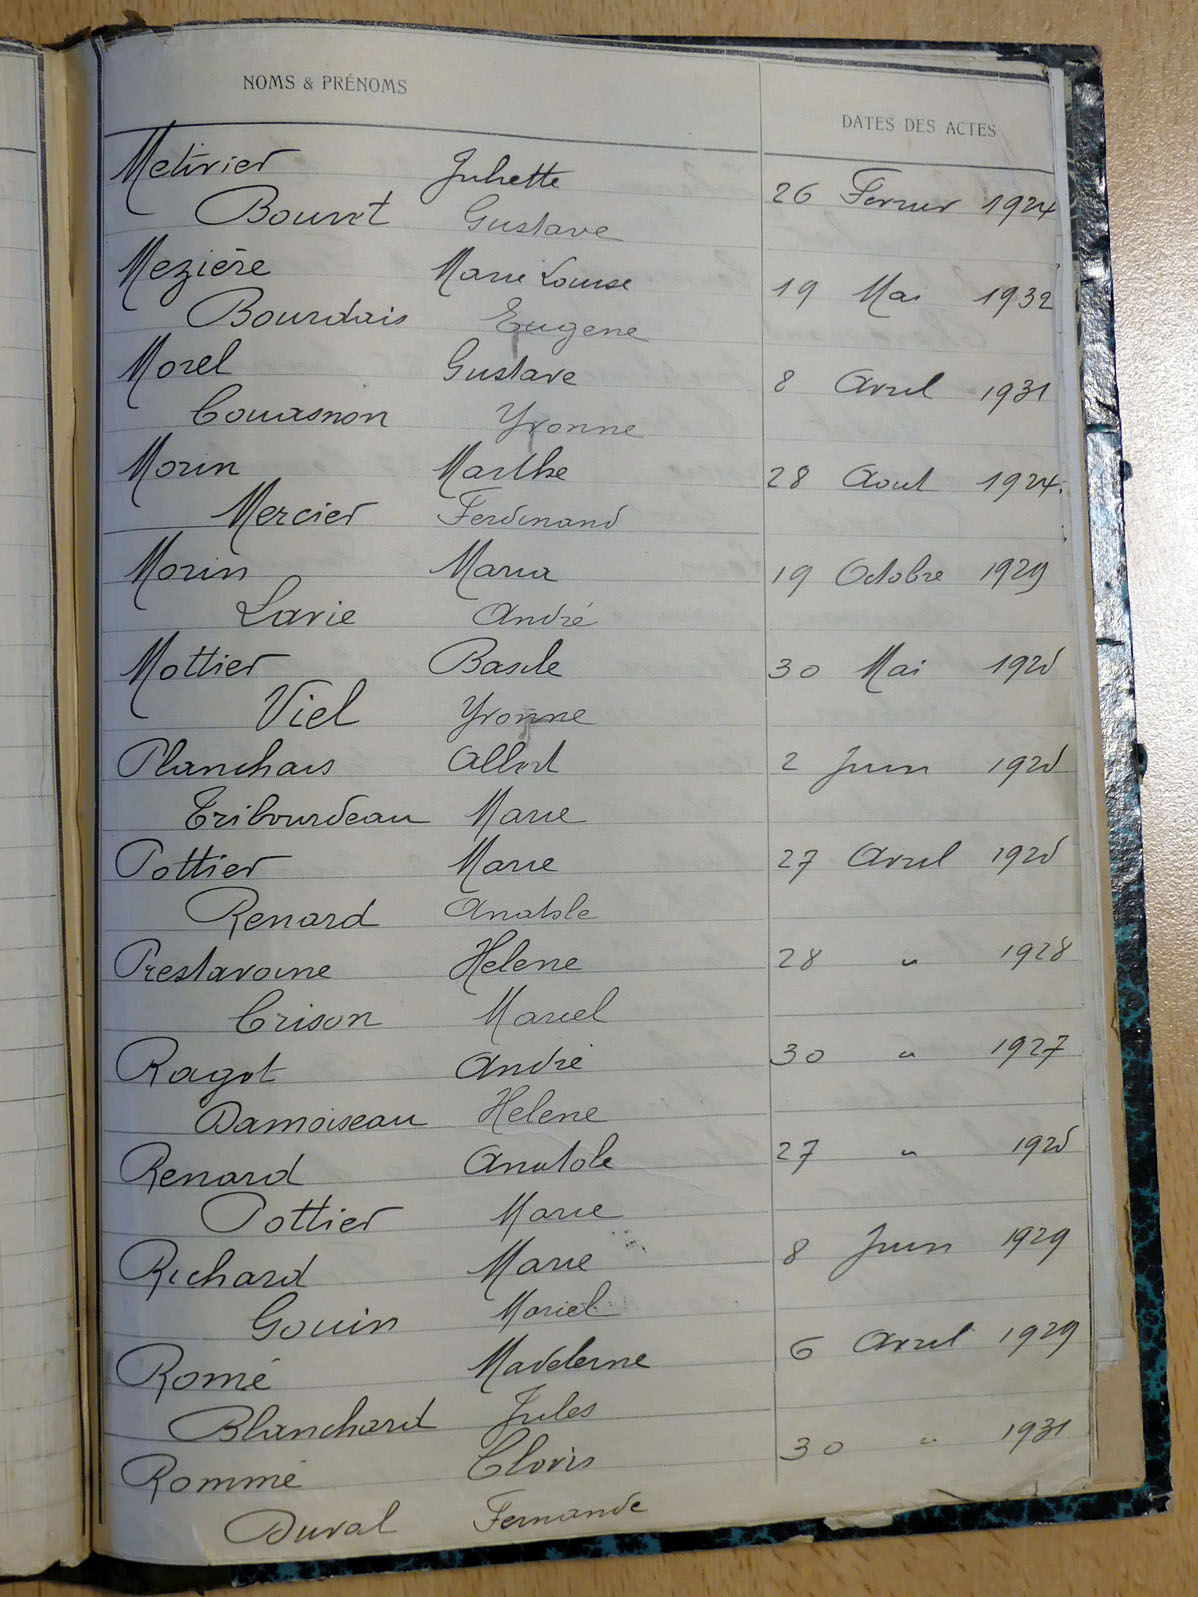 NOMS & PRÉNOMS DATES DES ACTES
Metivier Juliette 26 Fevrier 1924
Bouvet Gustave
Mezière Marie Louise 19 Mai 1932
Bourdais Eugene
Morel Gustave 8 Avril 1931
Couasnon Yvonne
Morin Marthe 28 Aout 1924
Mercier Ferdinand
Morin Maria 19 Octobre 1929
Lavie André
Mottier Basile 30 Mai 1925
Viel Yvonne
Planchais Albert 2 Juin 1925
Tribourdeau Marie
Pottier Marie 27 Avril 1925
Renard Anatole
Prestavoine Helene 28 " 1928
Crison Marcel
Ragot André 30 " 1927
Damoiseau Helene
Renard Anatole 27 " 1925
Pottier Marie
Richard Marie 8 Juin 1929
Gouin Marcel
Romé Madeleine 6 Avril 1929
Blanchard Jules
Rommé Clovis 30 " 1931
Duval Fernande